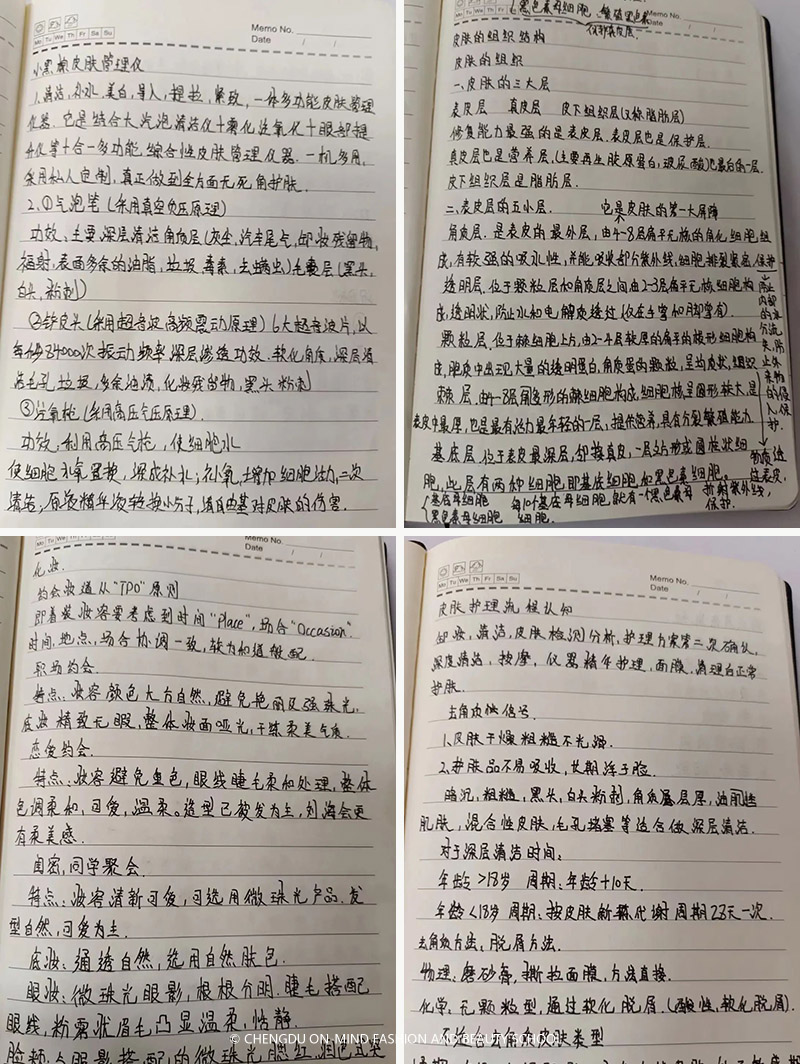 Memo No.
Mo Tu We Th Fr Sa Su
Date / /
小黑橡皮肤管理仪
1.清洁,补水,美白,导入,提拉,紧致,一体多功能皮肤管理
仪器.它是结合大气泡清洁仪+雾化注氧化+眼部提
升仪等十合一多功能,综合性皮肤管理仪器.一机多用,
采用私人定制,真正做到全方面无死角护肤.
2.①气泡笔(采用真空负压原理)
功效:主要深层清洁角质层(灰尘,汽车尾气,卸妆残留物,
辐射,表面多余的油脂,垃圾毒素,去螨虫)毛囊层(黑头,
白头,粉刺)
②铲皮头(采用超音波高频震动原理)6大超音波片,以
每小秒24000次振动频率深层渗透功效.软化角质,深层清
洁毛孔垃圾,多余油渍,化妆残留物,黑头粉刺
③注氧枪(采用高压气压原理).
功效:利用高压气枪,使细胞水
使细胞补氧置换,深成补水;补氧,增加细胞活力,二次
清洁,原液精华液转换小分子,清自由基对皮肤的伤害.
黑色素母细胞,繁殖黑色素
Memo No.
Mo Tu We Th Fr Sa Su
Date / /
皮肤的组织结构
皮肤的组织
一、皮肤的三大层
表皮层 真皮层 皮下组织层(又称脂肪层)
修复能力最强的是表皮层.表皮层也是保护层.
真皮层也是营养层,(主要再生胶原蛋白,玻尿酸)也最后的一层.
皮下组织层是脂肪层.
二、表皮层的五小层. 也是皮肤的第一大屏障
角质层.是表皮的最外层,由4-8层扁平无核的角化细胞组
成,有较强的吸水性,并能吸收部分紫外线,细胞排裂紧密,保护
透明层.位于颗粒层和角质层之间由2-3层扁平无核细胞构
成,透明状,防止水和电解质透过(仅在手掌和脚掌有).
颗粒层.位于棘细胞上方,由2-4层较厚的扁平的梭形细胞构
成,胞质中出现大量的透明蛋白,角质蛋的颗粒,呈均质状,组织
棘层.由4-8层角多形的棘细胞构成,细胞核呈圆形较大,是
表皮中最厚,也是最有活力最年轻的一层,提供营养,具有分裂繁殖能力
基底层.位于表皮最深层,邻接真皮,一层矮方形或圆柱状细
胞,此层有两种细胞即基底细胞,和黑色素细胞.
基底母细胞 每10个基底母细胞,就有一个黑色素母
黑色素母细胞 细胞.
防止内部的水分流失,防止外来物的侵入,保护.
折射紫外线,
保护.
Mo Tu We Th Fr Sa Su
Memo No.
Date / /
化妆.
约会妆遵从"TPO"原则
即着装妆容要考虑到时间"Place",场合"Occasion".
时间,地点,场合协调一致,较为和谐般配.
职场约会.
特点:妆容颜色大方自然,避免艳丽及强珠光,
底妆精致无暇,整体妆面哑光,干练柔美气质.
恋爱约会.
特点:妆容避免重色,眼线睫毛柔和处理,整体
色调柔和,可爱,温柔。造型已披发为主,刘海会更
有柔美感.
闺密,同学聚会.
特点:妆容清新可爱,可选用微珠光产品.发
型自然,可爱为主.
底妆:通透自然,选用自然肤色.
眼妆:微珠光眼影,根根分明.睫毛搭配
眼线,粉雾状眉毛凸显温柔,恬静.
Mo Tu We Th Fr Sa Su
Memo No.
Date / /
皮肤护理流程认知
卸妆,清洁,皮肤检测分析,护理方案第二次确认,
深度清洁,按摩,仪器精华护理,面膜,清理白正常
护肤.
去角质信号.
1.皮肤干燥粗糙不光滑.
2.护肤品不易吸收,长期浮于脸.
暗沉,粗糙,黑头,白头粉刺,角质层层厚,油肌性
肌肤,混合性皮肤,毛孔堵塞等适合做深层清洁.
对于深层清洁时间:
年龄>18岁 周期:年龄+10天.
年龄<18岁 周期:按皮肤新陈代谢周期28天一次.
去角质方法:脱屑方法.
物理:磨砂膏,撕拉面膜,方法直接.
化学:无颗粒型,通过软化脱屑.(酸性,软化脱屑).
© CHENGDU ON_MIND FASHION AND BEAUTY SCHOOL